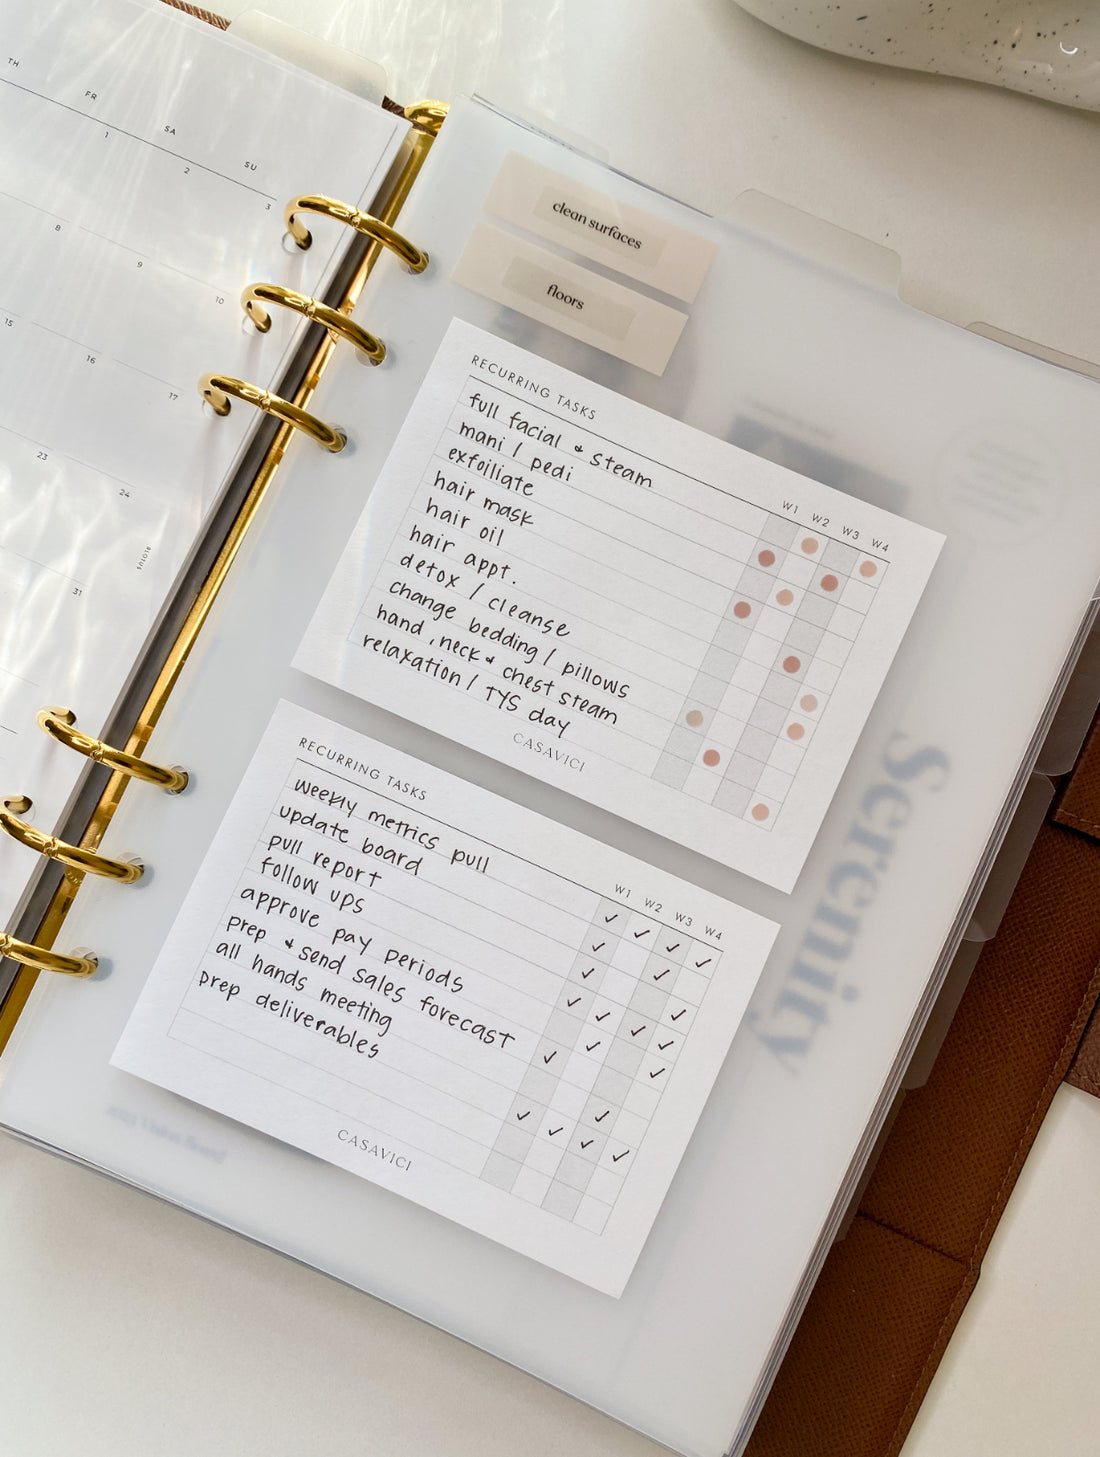 TH FR SA SU
1 2 3
8 9 10
15 16 17
23 24
31
clean surfaces
floors
RECURRING TASKS
W1 W2 W3 W4
full facial & steam
mani / pedi
exfoiliate
hair mask
hair oil
hair appt.
detox / cleanse
change bedding / pillows
hand, neck & chest steam
relaxation / TYS day
CASAVICI
RECURRING TASKS
W1 W2 W3 W4
weekly metrics pull
update board
pull report
follow ups
approve pay periods
prep & send sales forecast
all hands meeting
prep deliverables
CASAVICI
Serenity